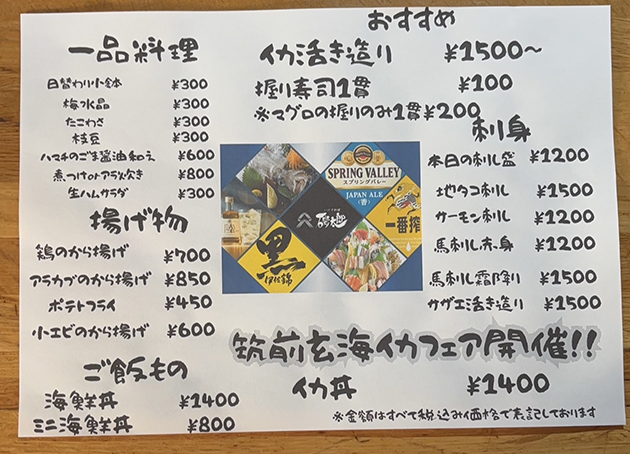 一品料理
日替わり小鉢 ¥300
梅水晶 ¥300
たこわさ ¥300
枝豆 ¥300
ハマチのごま醤油和え ¥600
煮つけorアラ炊き ¥800
生ハムサラダ ¥300
揚げ物
鶏のから揚げ ¥700
アラカブのから揚げ ¥850
ポテトフライ ¥450
小エビのから揚げ ¥600
ご飯もの
海鮮丼 ¥1400
ミニ海鮮丼 ¥800
おすすめ
イカ活き造り ¥1500～
握り寿司1貫 ¥100
※マグロの握りのみ1貫¥200
刺身
本日の刺し盛 ¥1200
地タコ刺し ¥1500
サーモン刺し ¥1200
馬刺し赤身 ¥1200
馬刺し霜降り ¥1500
サザエ活き造り ¥1500
SPRING VALLEY
スプリングバレー
JAPAN ALE
(香)
一番搾
黒
伊佐錦
筑前玄海イカフェア開催!!
イカ丼 ¥1400
※金額はすべて税込み価格で表記しております